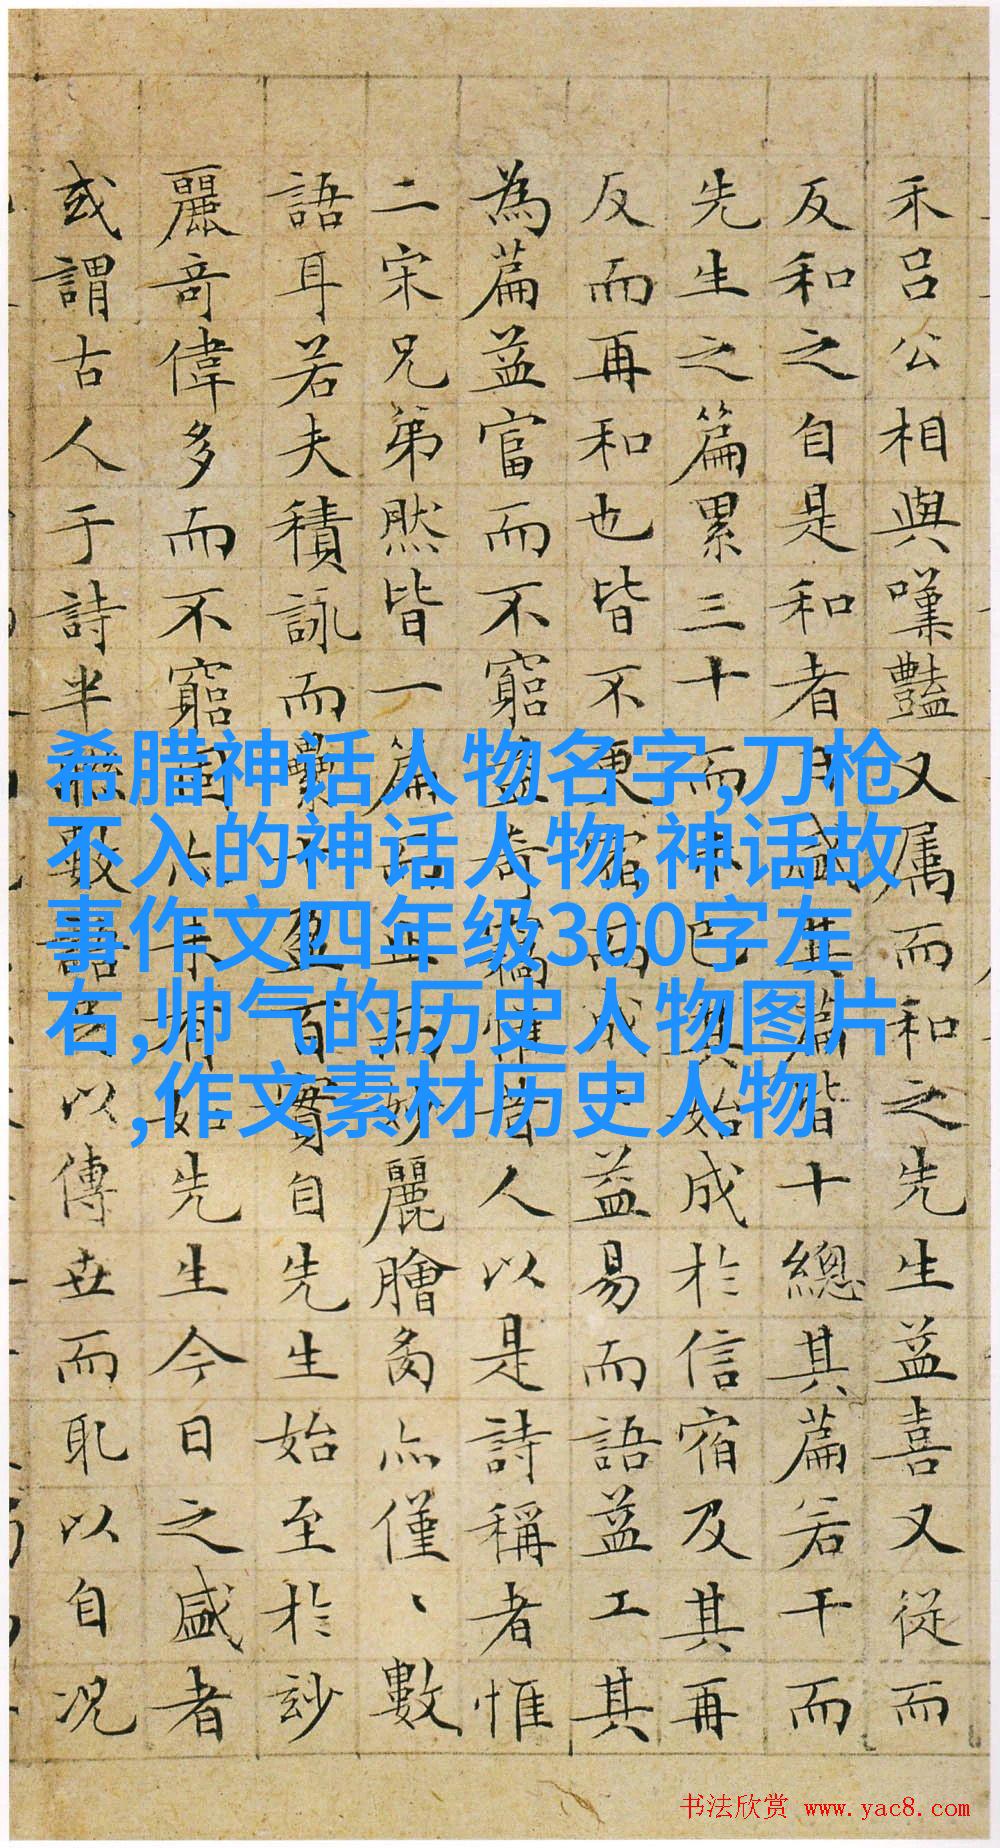 禾呂公相與嘆豔又属而和之先生益喜又從而
反和之自是和者日盛其篇皆十總其篇若干而
先生之篇累三十而未已其始成於信宿及其再
反而再和也皆不更宿而成益易而語益工其
為篇益富而不窮益奇竊惟昔人以是詩稱者惟
二宋兄弟然皆一篇而止妙麗膾亦僅、數
語耳若夫積詠而纍十盈百實自先生始至於玅
麗奇偉多而不窮固亦未有如先生今日之盛者
或謂古人于詩半聯數語足以傳世而耻以自况
希腊神话人物名字,刀枪
不入的神话人物,神话故
事作文四年级300字左
右,帅气的历史人物图片
,作文素材历史人物
书法欣赏 www.yac8.com